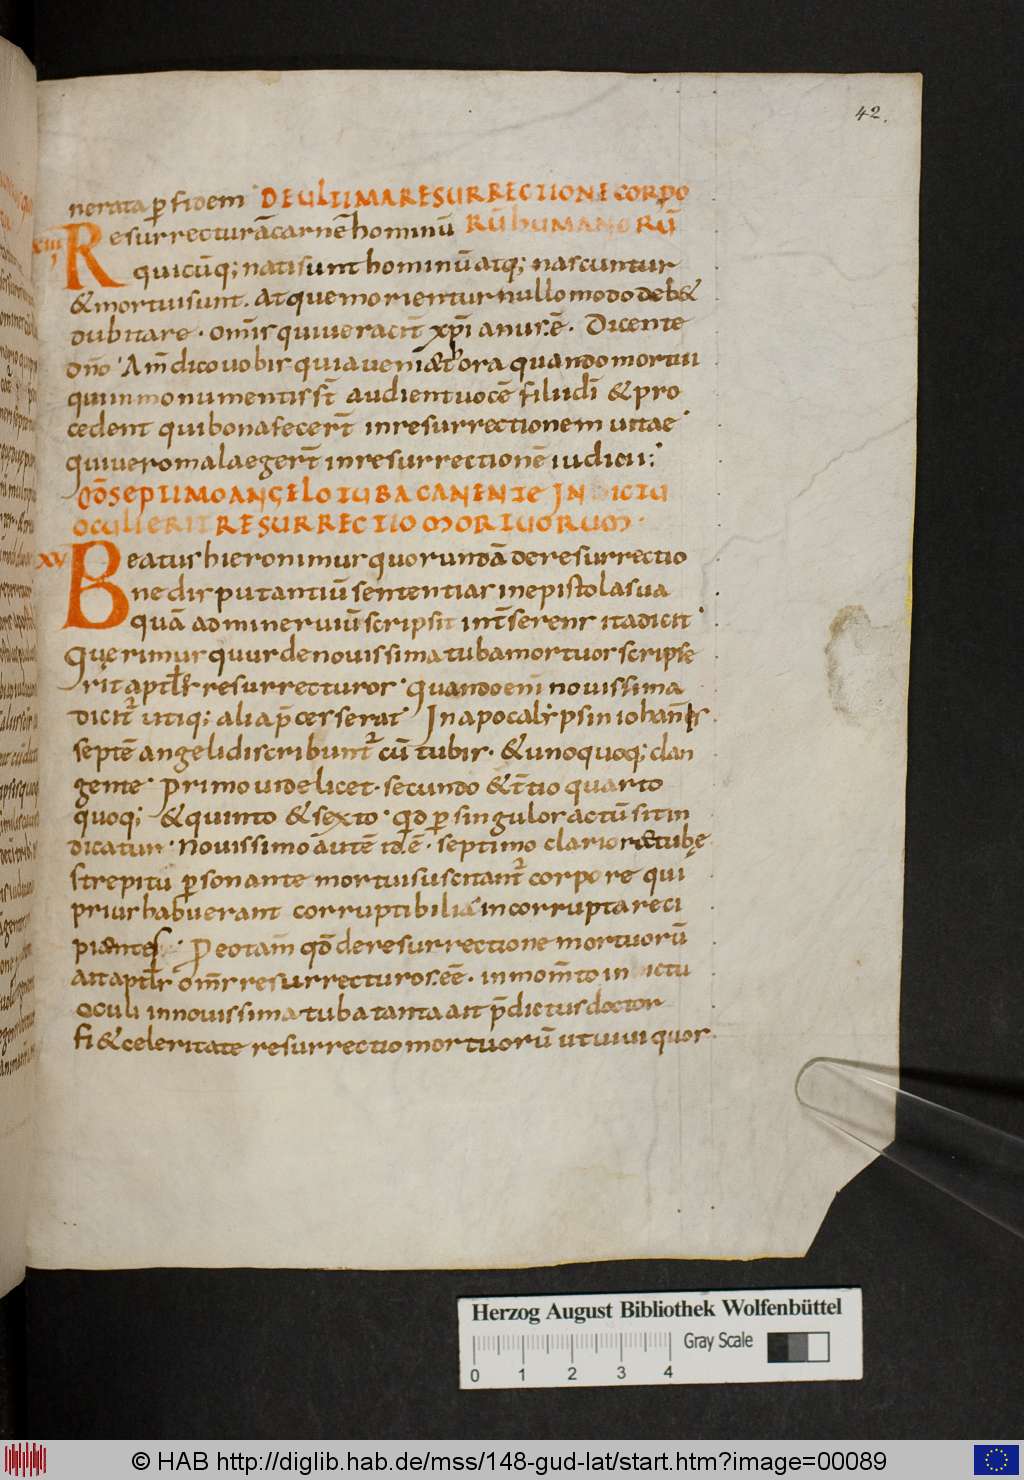 42.
nerata p̱ fidem DE ULTIMA RESURRECTIONE CORPO
XIIII Resurrecturā carnē hominū RŪ HUMANORŪ
quicūq; nati sunt hominū atq; nascuntur
& mortui sunt. atque morientur nullo modo deb&
dubitare. om̅s qui veracit̅ xp̅ianus ē. Dicente
dn̅o Am̅ dico vobis quia veni& hora quando mortui
qui in monumentis st̅ audient vocē filii dī & pro
cedent qui bona fecer̅t in resurrectionem vitae
qui vero mala eger̅t in resurrectionē iudicii:
QD̅ SEPTIMO ANGELO TUBA CANENTE IN ICTU
OCULI ERIT RESURRECTIO MORTUORUM.
XV Beatus hieronimus quorundā de resurrectio
ne disputantiū sententias in epistola sua
quā ad minerviū scripsit int̅serens ita dicit
Querimus quur de novissima tuba mortuos scripse
rit aptls resurrecturos. Quando enī novissima
dicit̅ utiq; alia p̅cesserat In apocalipsin iohannis
septē angeli discribunt̅ cū tubis. & uno quoq; clan
gente. primo videlicet. secundo & t̅tio quarto
quoq; & quinto & sexto. qd̅ p̱ singulos actū sit in
dicatur. Novissimo autē id ē. septimo clariore tubę
strepitu p̱sonante mortui suscitant̅ corpore qui
prius habuerant corruptibilia incorrupta reci
pientes. P eo tam̅ qd̅ de resurrectione mortuorū
ait aptls om̅s resurrecturos eē. in mom̅to in ictu
oculi in novissima tuba tanta ait p̅dictus doctor
fi& celeritate resurrectio mortuorū ut vivi quos
Herzog August Bibliothek Wolfenbüttel
Gray Scale
0 1 2 3 4
© HAB http://diglib.hab.de/mss/148-gud-lat/start.htm?image=00089